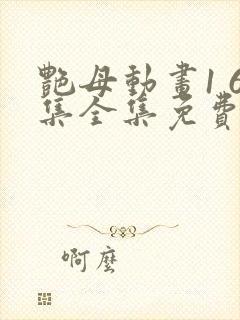 艷母動畫16
集全集免費
啊麼